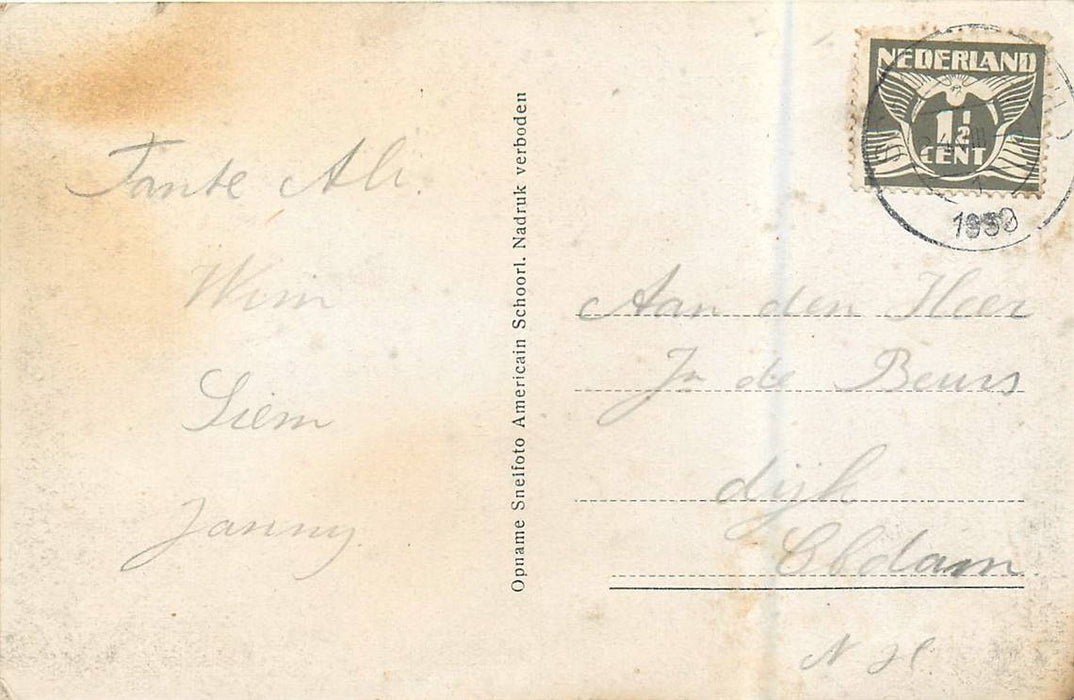 Tante Ali.
Wim
Siem
Janny.
Opname Snelfoto Americain Schoorl. Nadruk verboden
NEDERLAND
1½
CENT
Aan den Heer
Jn de Beurs
dijk
Obdam
N H